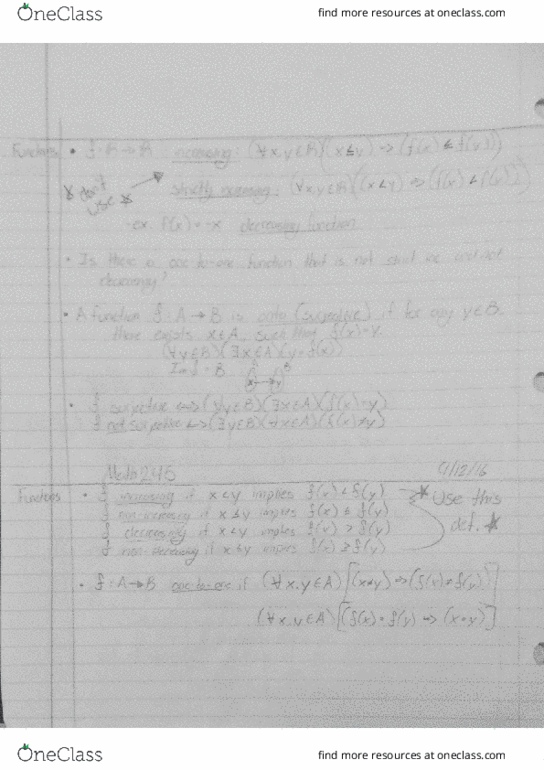 OneClass
find more resources at oneclass.com
Functions • f: R → R increasing: (∀x,y∈R)(x≤y) => (f(x) ≤ f(y))
* don't use *
strictly increasing: (∀x,y∈R)((x<y) => (f(x) < f(y)))
ex. f(x) = -x decreasing function
• Is there a one-to-one function that is not strict inc and not
decreasing?
• A function f: A → B is onto (surjective) if for any y∈B,
there exists x∈A, such that f(x)=y.
(∀y∈B)(∃x∈A)(y=f(x))
Im f = B
A B
x y
• f surjective <=> (∀y∈B)(∃x∈A)(f(x)=y)
f not surjective <=> (∃y∈B)(∀x∈A)(f(x)≠y)
Math 245
9/12/16
Functions • f increasing if x<y implies f(x) < f(y)
f non-increasing if x ≤ y implies f(x) ≤ f(y)
f decreasing if x<y implies f(x) > f(y)
f non-decreasing if x≤y implies f(x) ≥ f(y)
* Use this
def. *
• f: A→B one-to-one if (∀x,y∈A)[(x≠y) => (f(x)≠f(y))]
(∀x,y∈A)[(f(x)=f(y) => (x=y)]
OneClass
find more resources at oneclass.com